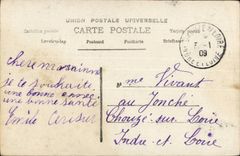 UNION POSTALE UNIVERSELLE
CARTE POSTALE
Levelezőlap
Postcard
Postkarte
Chere marainne
je te souhaite
une bonne année
une bonne santé
Emile
5 - 1
09
INDRE ET LOIRE
Mme Vivant
au Jonché
Chouzé-sur-Loire
Indre et Loire